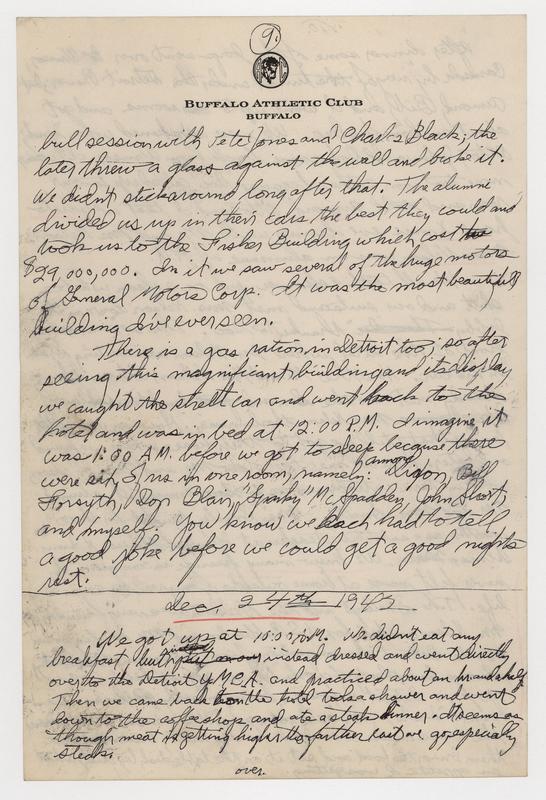 9.
BUFFALO ATHLETIC CLUB
BUFFALO
bull session with Pete Jones and Charles Black; the
later threw a glass against the wall and broke it.
We didn't stick around long after that. The alumni
divided us up in their cars the best they could and
took us to the Fisher Building which cost
$29,000,000. In it we saw several of the huge motors
of General Motors Corp. It was the most beautiful
building I've ever seen.
There is a gas ration in Detroit too, so after
seeing this magnificent building and its display
we caught the street car and went back to the
hotel and was in bed at 12:00 P.M. I imagine it
was 1:00 A.M. before we got to sleep because there
were six of us in one room, namely: Armond Dixon, Bill
Forsyth, Don Blair, "Sparky" McSpadden, John Short,
and myself. You know we each had to tell
a good joke before we could get a good nights
rest.
Dec. 24th 1942
We got up at 10:00 A.M. We didn't eat any
breakfast, but instead dressed and went directly
over to the Detroit Y.M.C.A. and practiced about an hr. and a half.
Then we came back to the hotel took a shower and went
down to the coffee shop and ate a steak dinner. It seems as
though meat is getting higher the farther east we go, especially
steaks.
over.